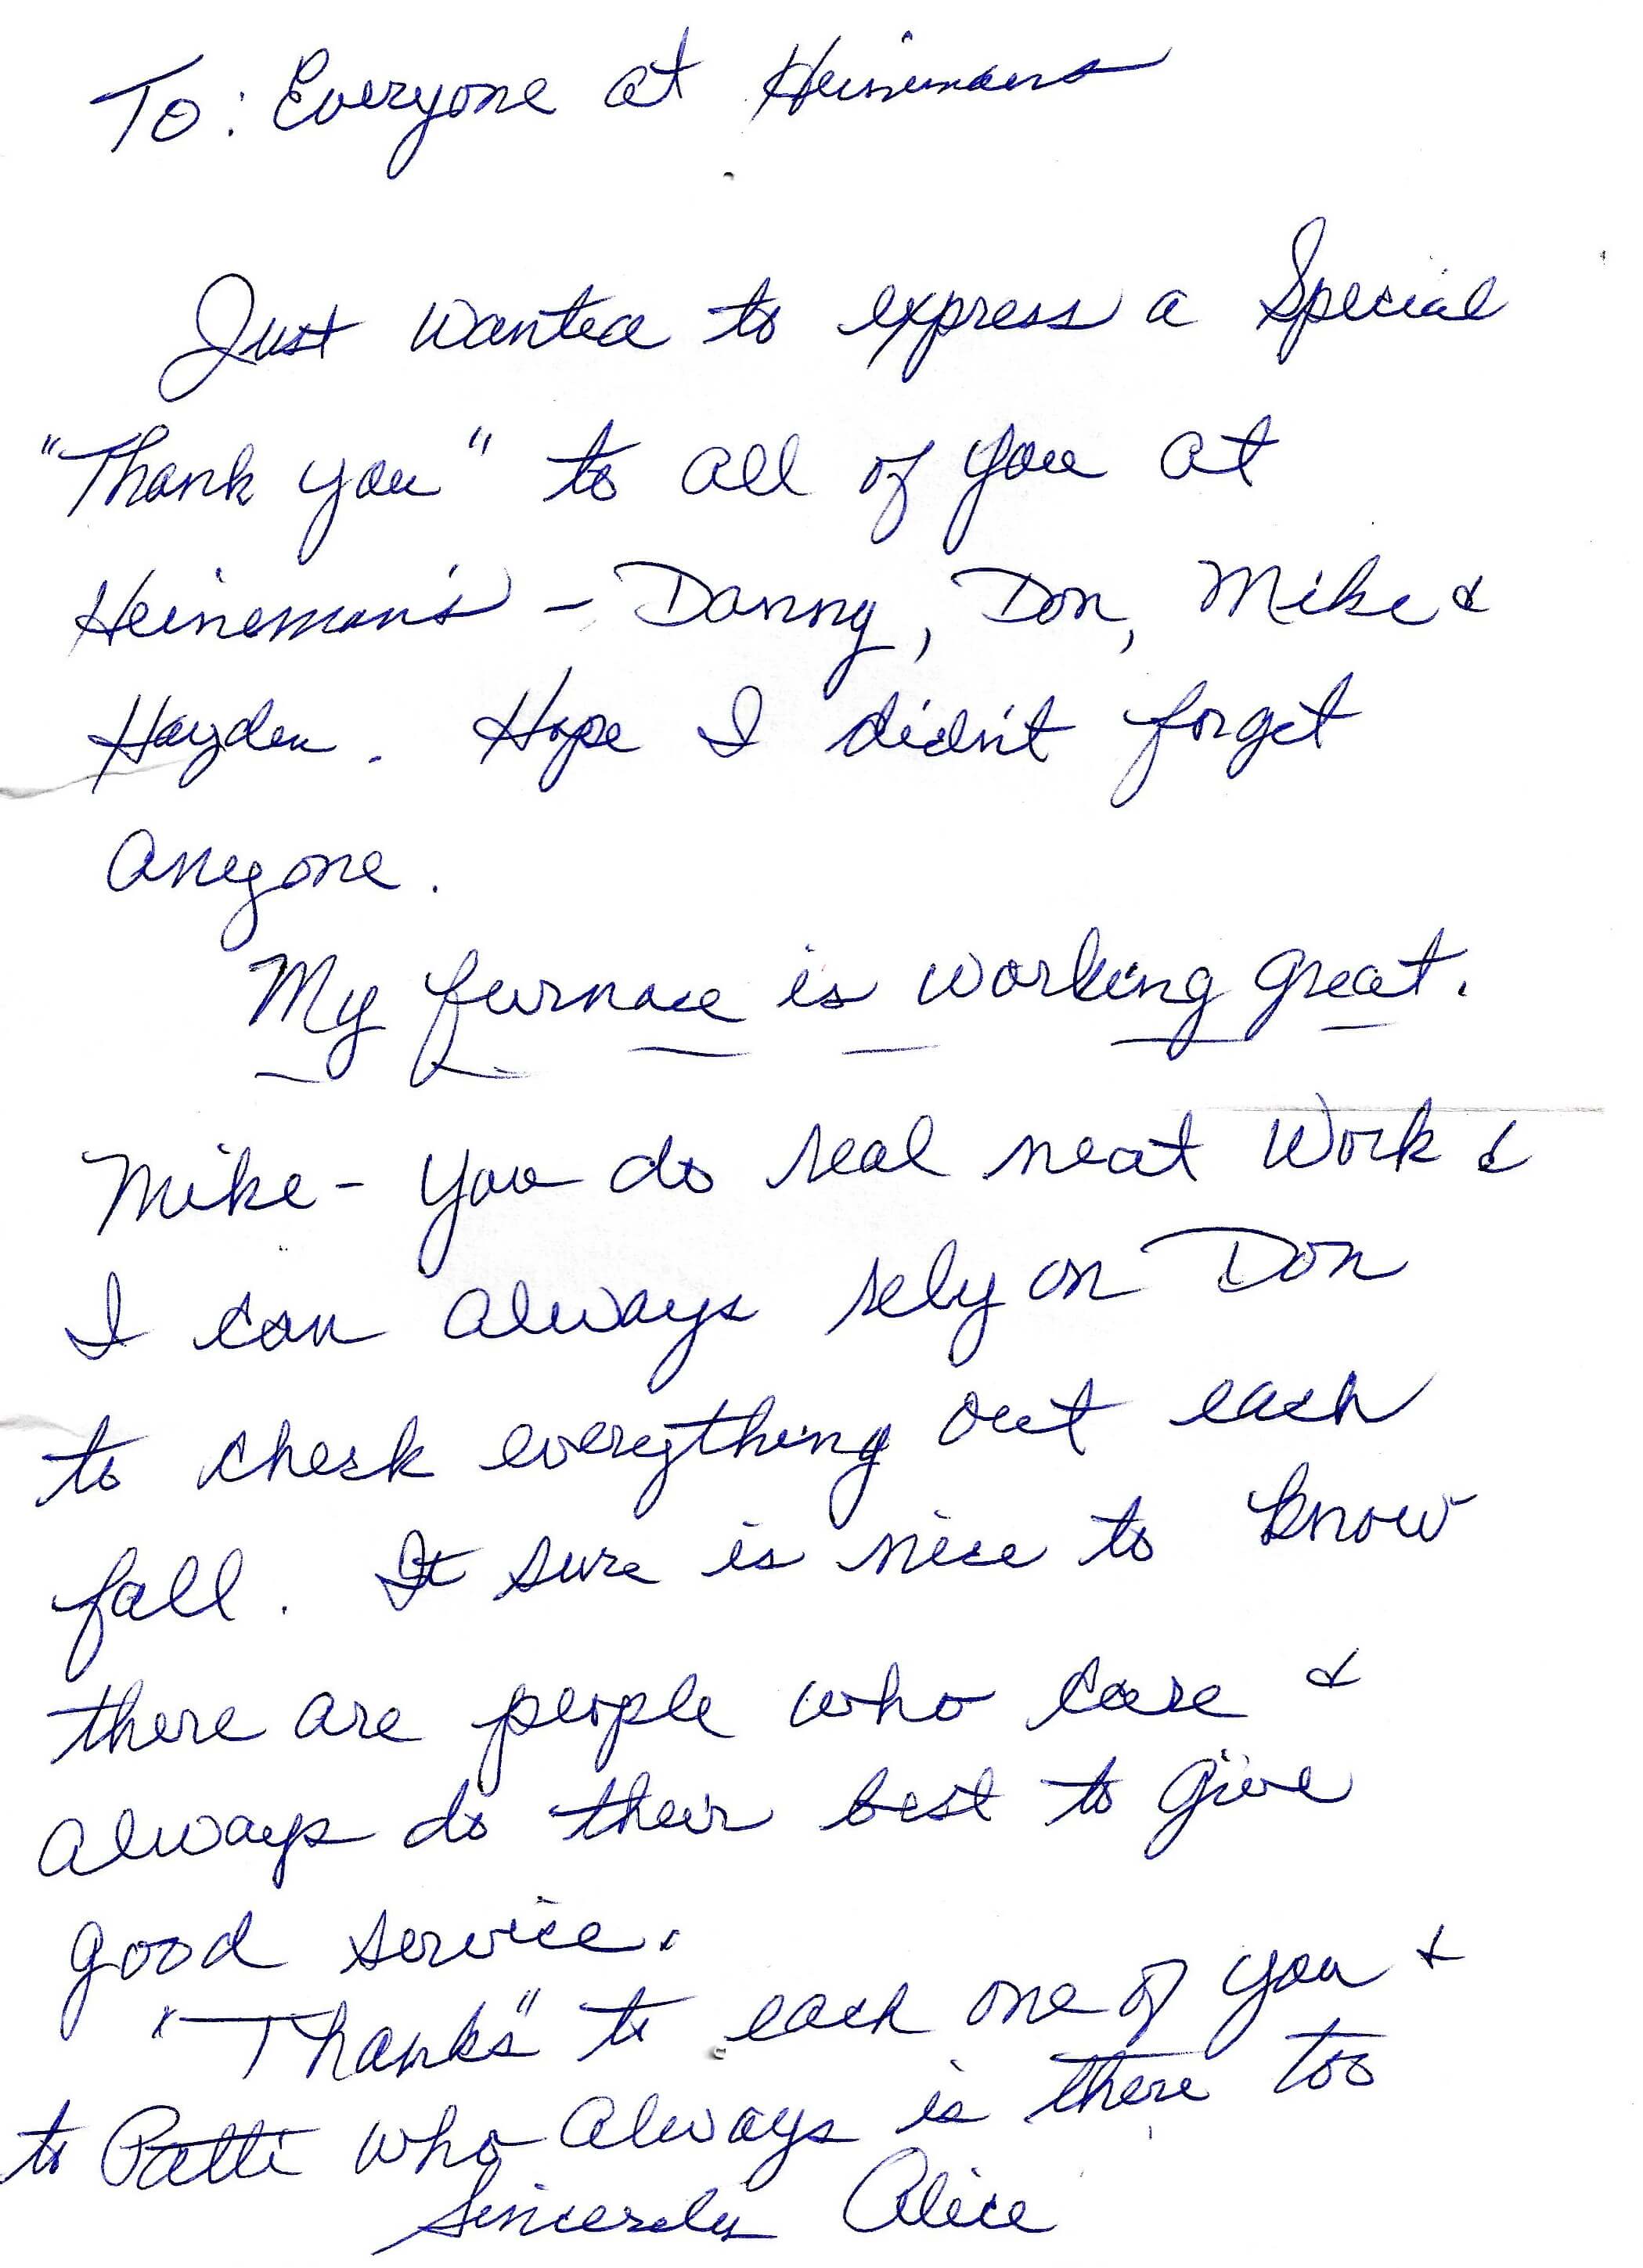 To: Everyone at Heinemans
Just wanted to express a Special
"Thank you" to all of you at
Heineman's - Danny, Don, Mike &
Hayden. Hope I didn't forget
anyone.
My furnace is working great.
Mike - you do real neat work &
I can always rely on Don
to check everything out each
fall. It sure is nice to know
there are people who care &
always do their best to give
good service.
"Thanks" to each one of you &
to Patti who always is there too
Sincerely Alice